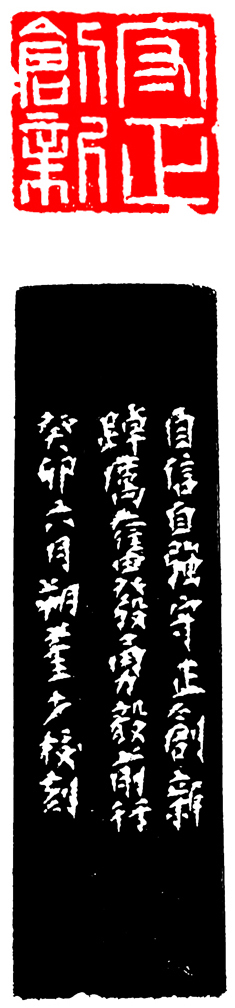 守正
創新
自信自強守正創新
踔厲奮發勇毅前行
癸卯六月朔董少校刻